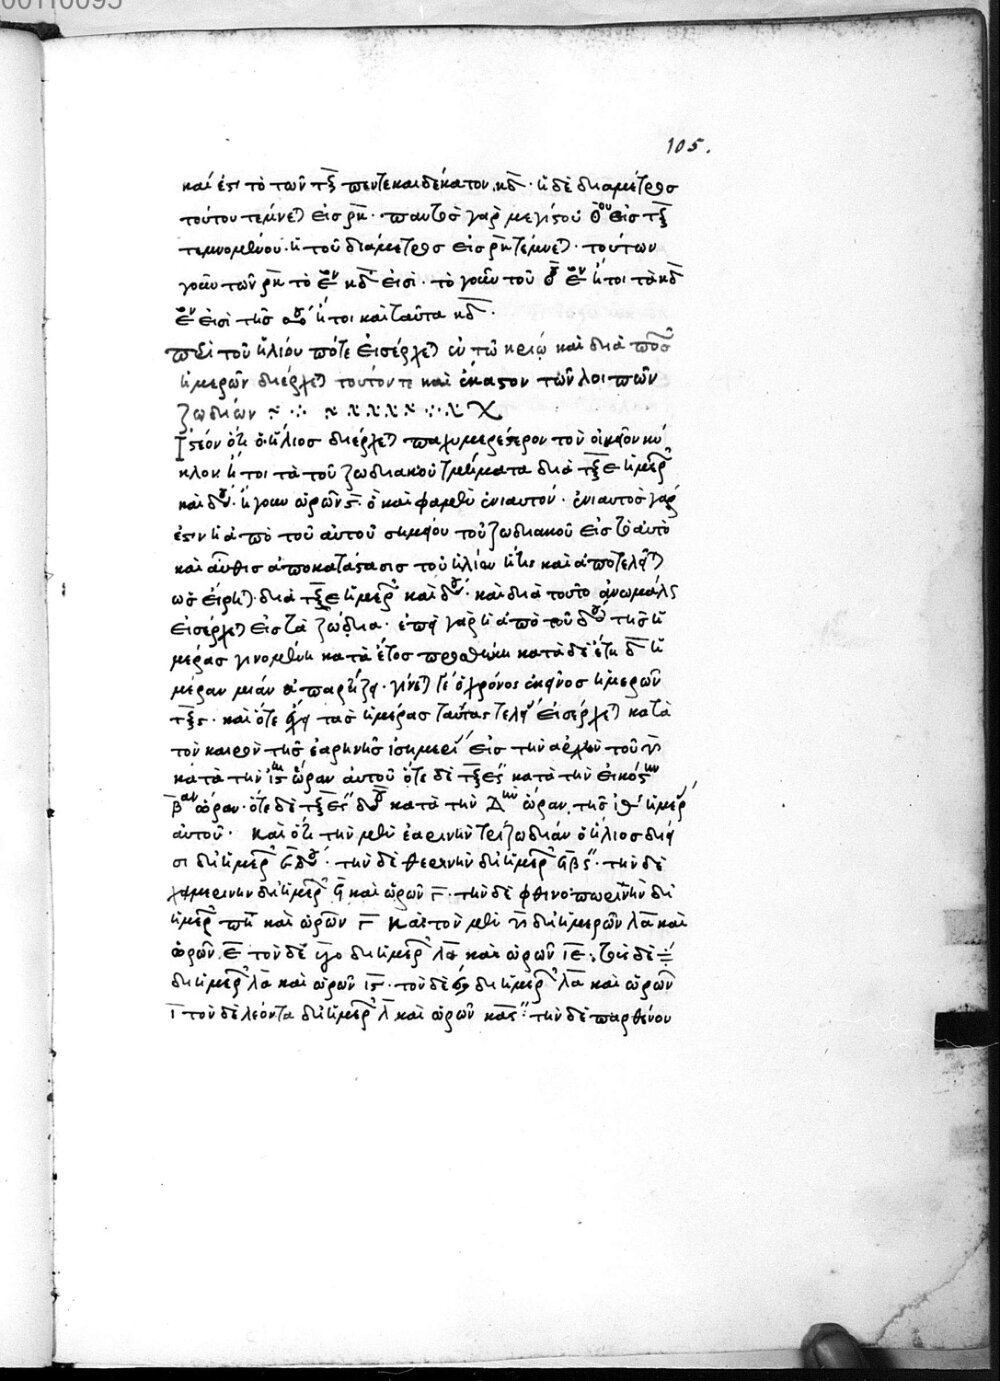 00110095
105.
καί ἐστι τὸ τῶν τξ πεντεκαιδέκατον κδ · ἡ δὲ διάμετρος
τούτου τέμνεται εἰς ρκ · παντὸς γὰρ μεγίστου εἰς τξ
τεμνομένου · ἡ τοῦ διάμετρος εἰς ρκ τέμνεται · τούτων
γοῦν τῶν ρκ τὸ κδ εἰσὶ · τὸ γοῦν τοῦ ἤτοι τὰ κδ
εἰσὶ τῆς ἤτοι καὶ ταῦτα κδ ·
περὶ τοῦ ἡλίου πότε εἰσέρχεται ἐν τῷ κριῷ καὶ διὰ πόσων
ἡμερῶν διέρχεται τοῦτόν τε καὶ ἕκαστον τῶν λοιπῶν
ζωδίων
Ἰστέον ὅτι ὁ ἥλιος διέρχεται παχυμερέστερον τὸν οἰκεῖον κύ
κλον ἤτοι τὰ τοῦ ζωδιακοῦ τμήματα διὰ τξε ἡμερῶν
καὶ δου · ἤγουν ὡρῶν ς · ὃ καὶ φαμὲν ἐνιαυτόν · ἐνιαυτὸς γάρ
ἐστιν ἡ ἀπὸ τοῦ αὐτοῦ σημείου τοῦ ζωδιακοῦ εἰς τὸ αὐτὸ
καὶ αὖθις ἀποκατάστασις τοῦ ἡλίου ἥτις καὶ ἀποτελεῖται
ὡς εἴρηται διὰ τξε ἡμερῶν καὶ δου · καὶ διὰ τοῦτο ἀνωμάλως
εἰσέρχεται εἰς τὰ ζώδια · ἐπεὶ γὰρ ἡ ἀπὸ τοῦ δου τῆς ἡ
μέρας γινομένη κατὰ ἔτος προσθήκη κατὰ δὲ ἔτη δ ἡ
μέραν μίαν ἀπαρτίζει · γίνεται τε ὁ χρόνος ἐκεῖνος ἡμερῶν
τξς · καὶ ὅτε τὰς ἡμέρας ταύτας τελεῖ εἰσέρχεται κατὰ
τὸν καιρὸν τῆς ἐαρινῆς ἰσημερίας εἰς τὴν ἀρχὴν τοῦ ♈
κατὰ τὴν ις ὥραν αὐτοῦ ὅτε δὲ τξε κατὰ τὴν εἰκοστὴν
βαν ὥραν · ὅτε δὲ τξε κατὰ τὴν Δην ὥραν τῆς ιθ ἡμέρας
αὐτοῦ · καὶ ὅτι τὴν μὲν ἐαρινὴν τριζωδίαν ὁ ἥλιος δίει
σι δι ἡμερῶν · τὴν δὲ θερινὴν δι ἡμερῶν · τὴν δὲ
χειμερινὴν δι ἡμερῶν καὶ ὡρῶν γ · τὴν δὲ φθινοπωρινὴν δι
ἡμερῶν πη καὶ ὡρῶν γ καὶ τὸν μὲν ♈ δι ἡμερῶν λα καὶ
ὡρῶν ε τὸν δὲ δι ἡμερῶν λα καὶ ὡρῶν ιε · τοὺς δὲ
δι ἡμερῶν λα καὶ ὡρῶν ις · τὸν δὲ δι ἡμερῶν λα καὶ ὡρῶν
ι τὸν δὲ λέοντα δι ἡμερῶν λ καὶ ὡρῶν κα · τὴν δὲ παρθένον